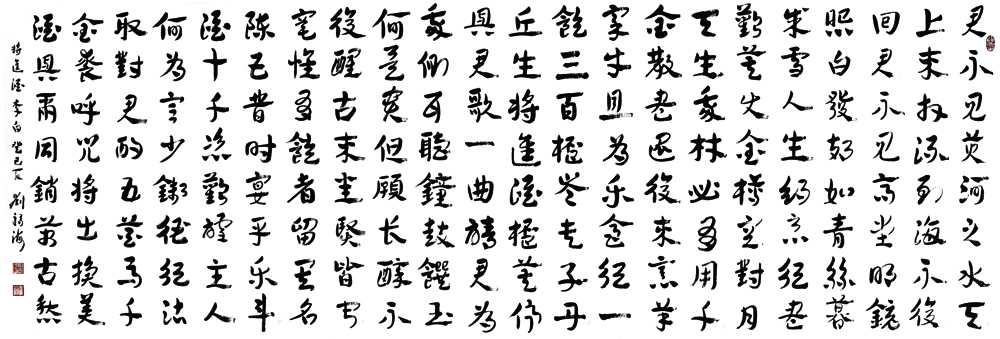 君不见黄河之水天
上来奔流到海不復
回君不见高堂明鏡
悲白發朝如青絲暮
成雪人生得意須盡
歡莫使金樽空對月
天生我材必有用千
金散盡還復來烹羊
宰牛且為乐會須一
飲三百杯岑夫子丹
丘生將進酒杯莫停
與君歌一曲請君為
我側耳聽鐘鼓饌玉
何足貴但願长醉不
復醒古来聖賢皆寂
寞惟有飲者留其名
陳王昔時宴平乐斗
酒十千恣歡謔主人
何為言少錢徑須沽
取對君酌五花馬千
金裘呼兒將出換美
酒與爾同銷萬古愁
將進酒 李白 癸巳夏 劉海